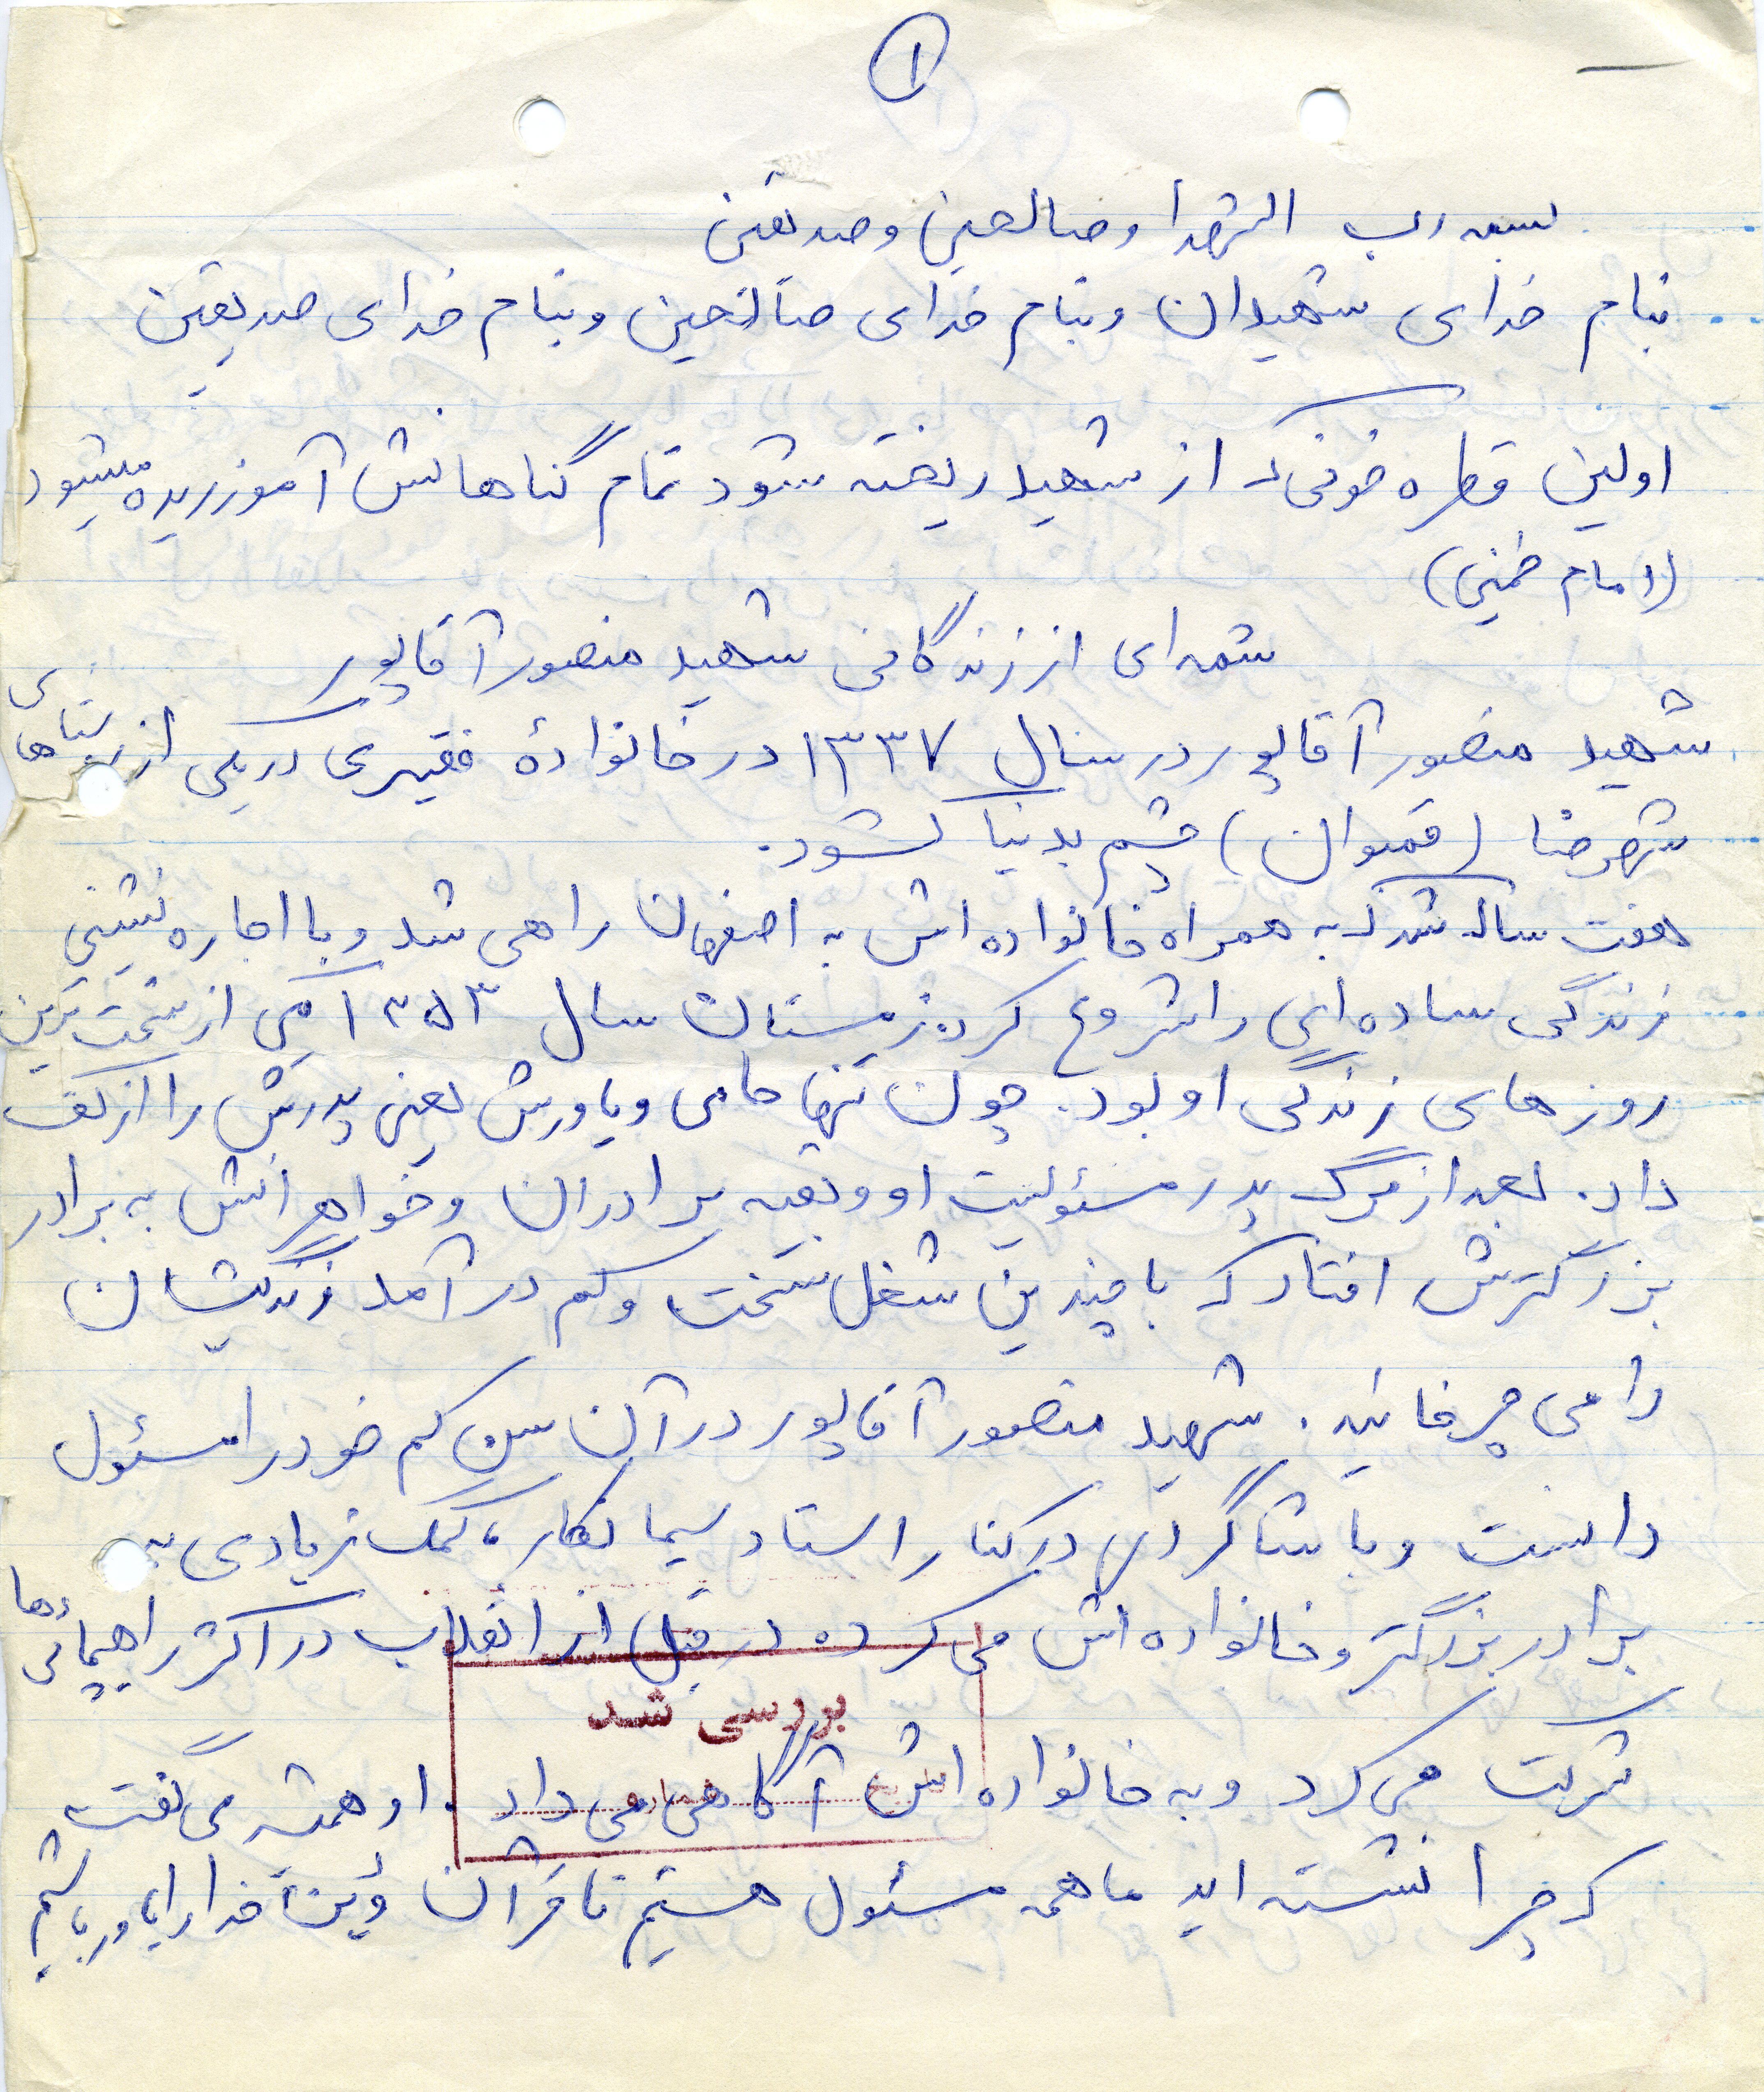 ۱
بسمه رب الشهدا وصالحین وصدیقین
بنام خدای شهیدان وبنام خدای صالحین وبنام خدای صدیقین
اولین قطره خونی که از شهید ریخته شود تمام گناهانش آموزریده میشود
(امام خمینی)
شمه ای از زندگانی شهید منصور آقاپور
شهید منصور آقاپور در سال ۱۳۳۷ در خانوادۀ فقیری در یکی از روستاهای
شهرضا (قمبوان) چشم بدنیا گشود.
هفت ساله شد که به همراه خانواده اش به اصفهان راهی شد و با اجاره نشینی
زندگی ساده ای را شروع کرد. زمستان سال ۱۳۵۳ یکی از سخت ترین
روزهای زندگی او بود. چون تنها حامی و یاورش یعنی پدرش را از کف
داد. بعد از مرگ پدر مسئولیت او و بقیه برادران و خواهرانش به برادر
بزرگترش افتاد که با چندین شغل سخت و کم درآمد زندگیشان
را می چرخانید. شهید منصور آقاپور در آن سن کم خود را مسئول
دانست و با شاگردی در کنار استاد سیمانکار، کمک زیادی به
برادر بزرگتر و خانواده اش می کرد. در قبل از انقلاب در اکثر راهپیمائی ها
بررسی شد
شرکت می کرد و به خانواده اش آگاهی می داد. او همیشه می گفت
که چرا نشسته اید ما همه مسئول هستیم تا قرآن و دین خدا را یاور باشیم